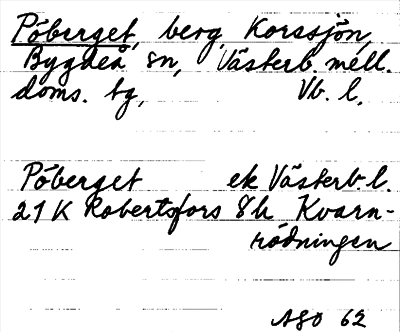 Pöberget, berg, Korssjön,
Bygdeå sn, Västerb. mell.
doms. tg, Vb. l.
Pöberget ek Västerb. l.
21 K Robertsfors 8h Kvarn-
rödningen
ASO 62